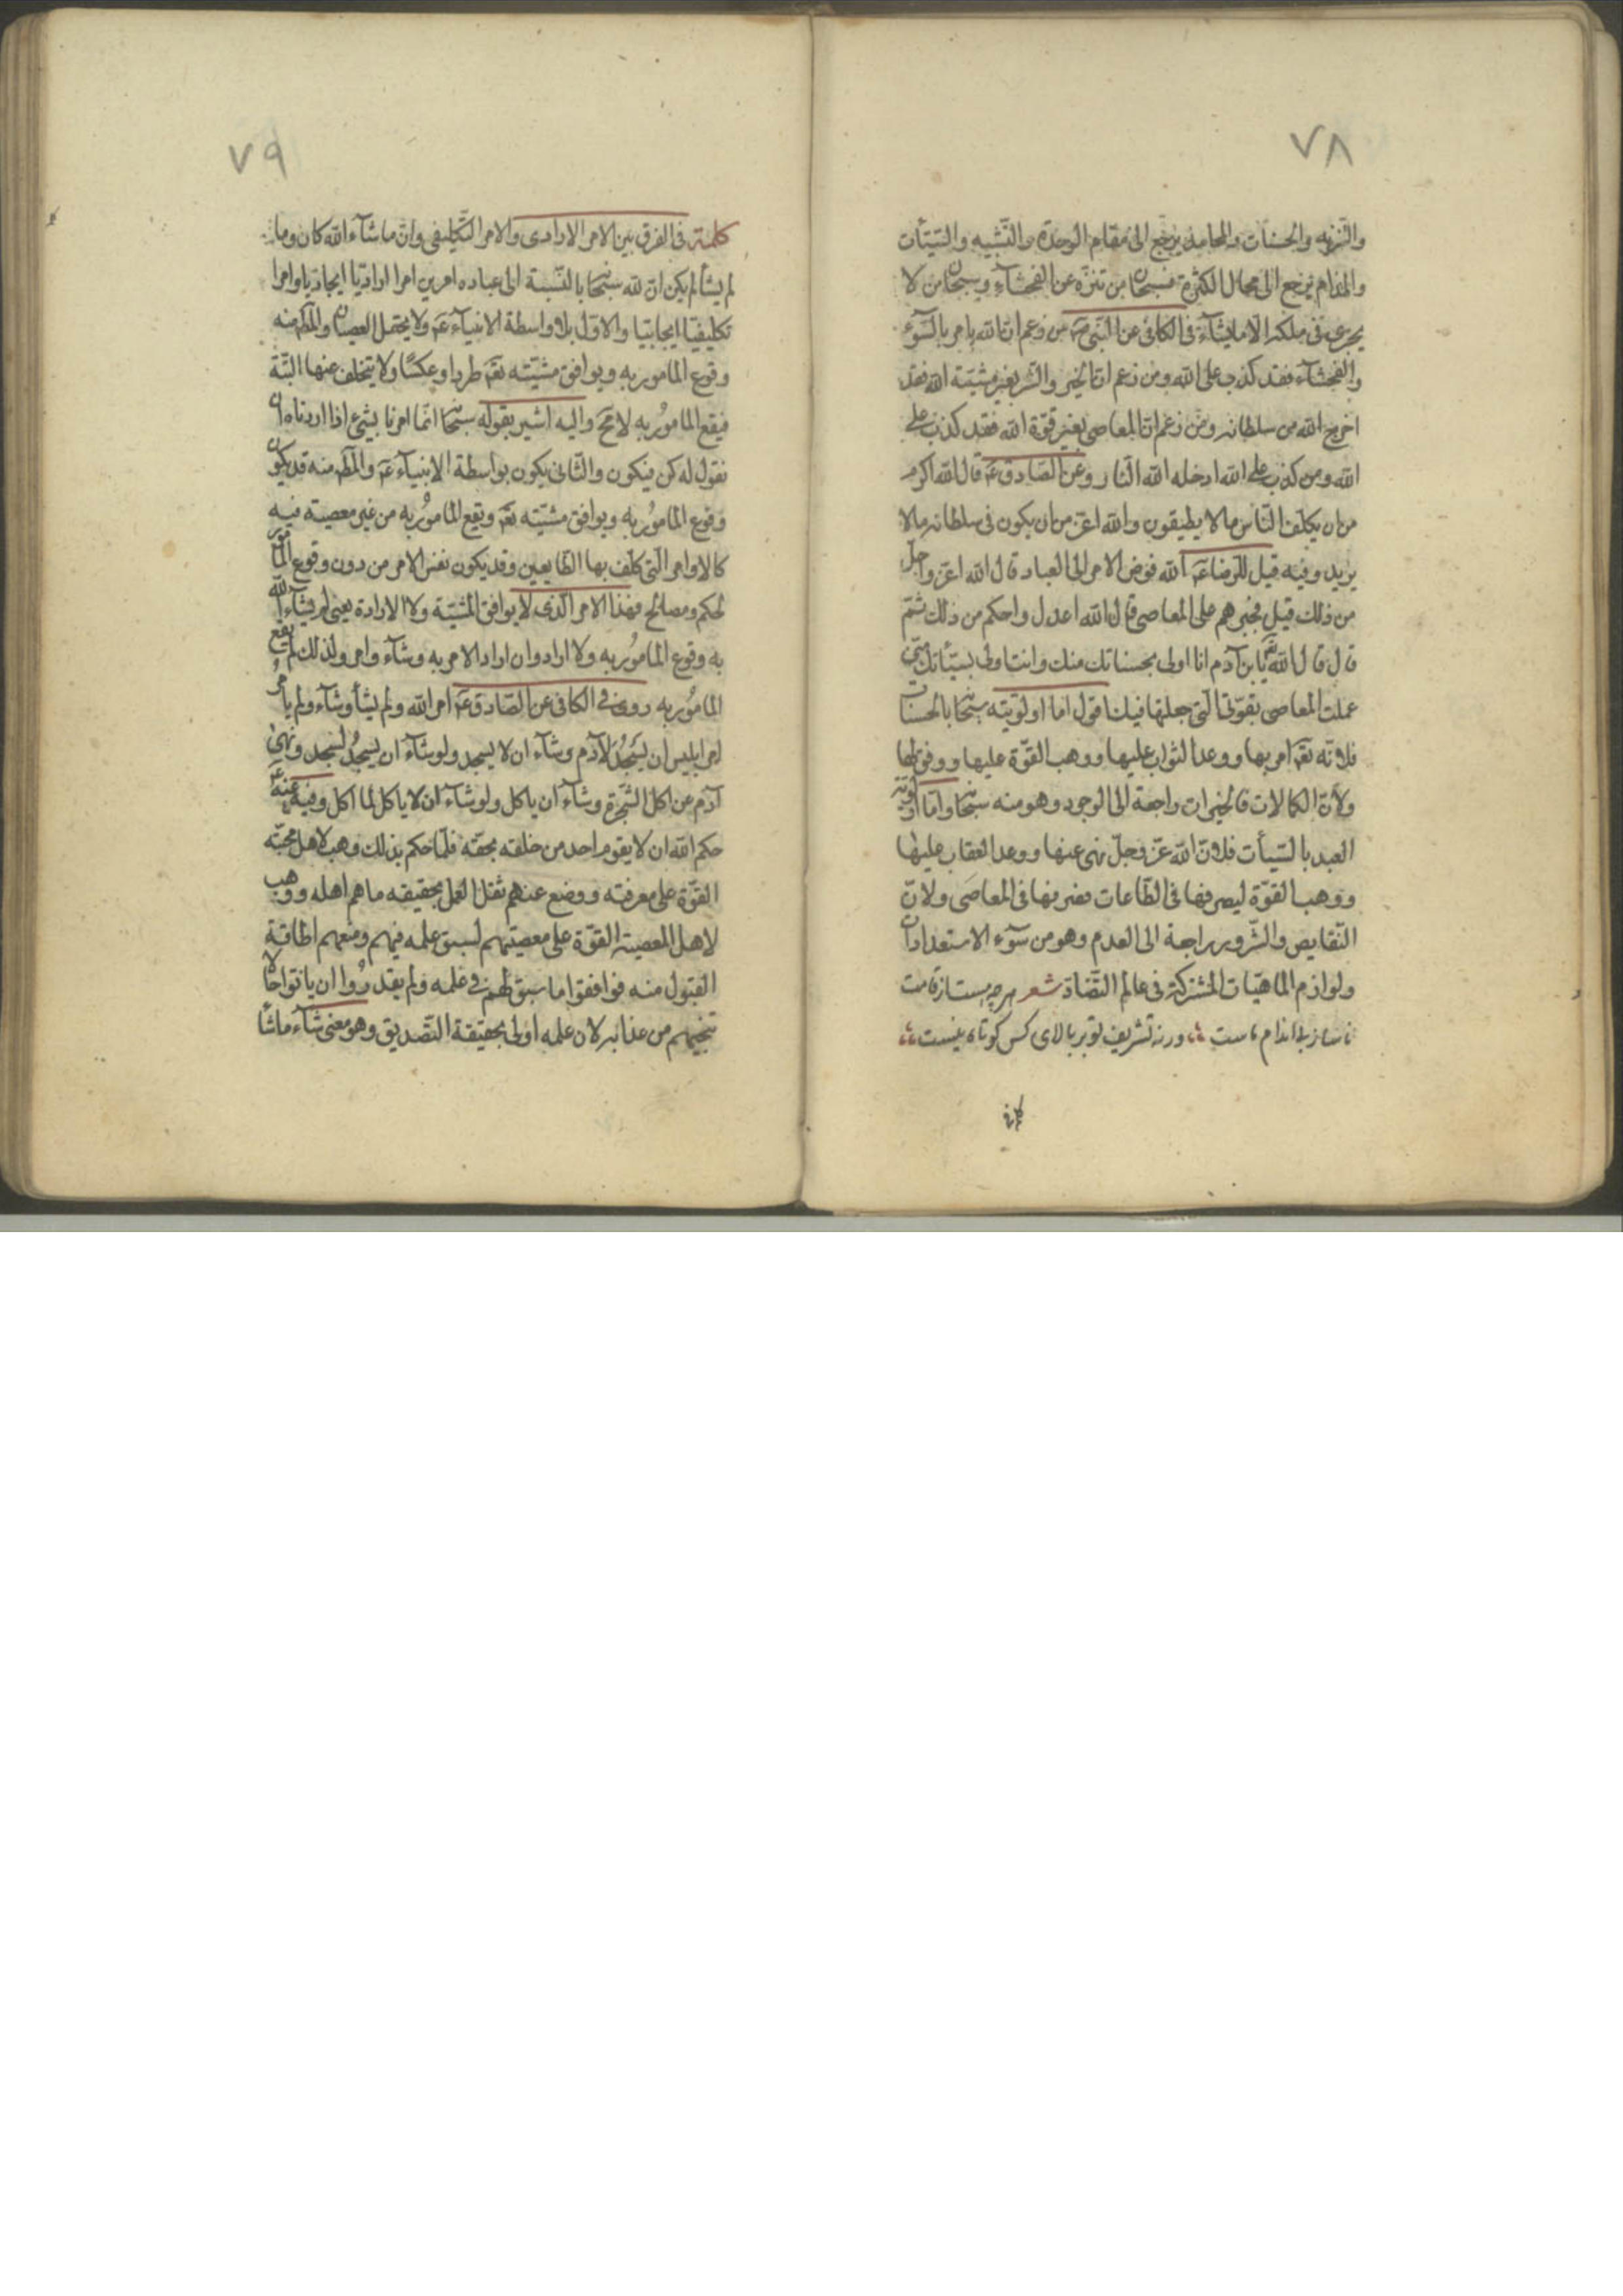 ٧٨
والتنزيه والحسنات والمحامد يرجع الى مقام الوحدة والتشبيه والسيئات
والمذام يرجع الى محال الكثرة فسبحان من تنزه عن الفحشاء وسبحان من لا
يجرى فى ملكه الا ما يشاء فى الكافى عن النبى صم من زعم ان الله يامر بالسوء
والفحشاء فقد كذب على الله ومن زعم ان الخير والشر بغير مشيّة الله فقد
اخرج الله من سلطانه ومن زعم ان المعاصى بغير قوّة الله فقد كذب على
الله ومن كذب على الله ادخله الله النار وعن الصادق عم قال الله اكرم
من ان يكلف الناس ما لا يطيقون والله اعز من ان يكون فى سلطانه ما لا
يريد وفيه قيل للرضا عم الله فوض الامر الى العباد قال الله اعز واجل
من ذلك قيل فجبرهم على المعاصى قال الله اعدل واحكم من ذلك ثم
قال قال الله تعم يا بن آدم انا اولى بحسناتك منك وانت اولى بسيئاتك منى
عملت المعاصى بقوّتى التى جعلتها فيك اقول اما اولويته سبحا بالحسنات
فلانه تعم امر بها ووعد الثواب عليها ووهب القوّة عليها ووفق لها
ولان الكمالات فالخيرات راجعة الى الوجود وهو منه سبحا واما اولويّة
العبد بالسيئات فلان الله عز وجل نهى عنها ووعد العقاب عليها
ووهب القوّة ليصرفها فى الطاعات فصرفها فى المعاصى ولان
النقايص والشرور راجعة الى العدم وهو من سوء الاستعدادات
ولوازم الماهيّات المشتركة فى عالم التضاد شعر هرچه هست از قامت
ناساز بى اندام ماست ورنه تشريف تو بر بالاى كس كوتاه نيست
كلمة
٧٩
كلمة فى الفرق بين الامر الارادى والامر التكليفى وان ما شاء الله كان وما
لم يشأ لم يكن ان لله سبحا بالنسبة الى عباده امرين امرا اراديّا ايجاديا وامرا
تكليفيّا ايجابيّا والاول بلا واسطة الانبياء عم ولا يحتمل العصيان والمط منه
وقوع المامور به ويوافق مشيّته تعم طردا وعكسًا ولا يتخلف عنها البتة
فيقع المامور به لا مح واليه اشير بقوله سبحا انما امرنا بشىء اذا اردناه ان
نقول له كن فيكون والثانى يكون بواسطة الانبياء عم والمط منه قد يكون
وقوع المامور به ويوافق مشيّته تعم ويقع المامور به من غير معصية فيه
كالاوامر التى كلّف بها الطايعين وقد يكون نفس الامر من دون وقوع المامور
لحكم ومصالح فهذا الامر الذى لا يوافق المشيّة ولا الارادة يعنى لم يشاء الله
به وقوع المامور به ولا اراد وان اراد الامر به وشاء وامر ولذلك لم يقع
المامور به روى فى الكافى عن الصادق عم امر الله ولم يشأ وشاء ولم يامر
امر ابليس ان يسجد لآدم وشاء ان لا يسجد ولو شاء ان يسجد لسجد ونهى
آدم عن اكل الشجرة وشاء ان ياكل ولو شاء ان لا ياكل لما اكل وفيه عنه عم
حكم الله ان لا يقوم احد من خلقه بحقّه فلما حكم بذلك وهب لاهل محبّته
القوّة على معرفته ووضع عنهم ثقل العمل بحقيقه ما هم اهله ووهب
لاهل المعصية القوّة على معصيتهم لسبق علمه فيهم ومنعهم اطاقة
القبول منه فوافقوا ما سبق لهم فى علمه ولم يقدروا ان ياتوا حالا
تنجيهم من عذابه لان علمه اولى بحقيقة التصديق وهو معنى شاء ما شا